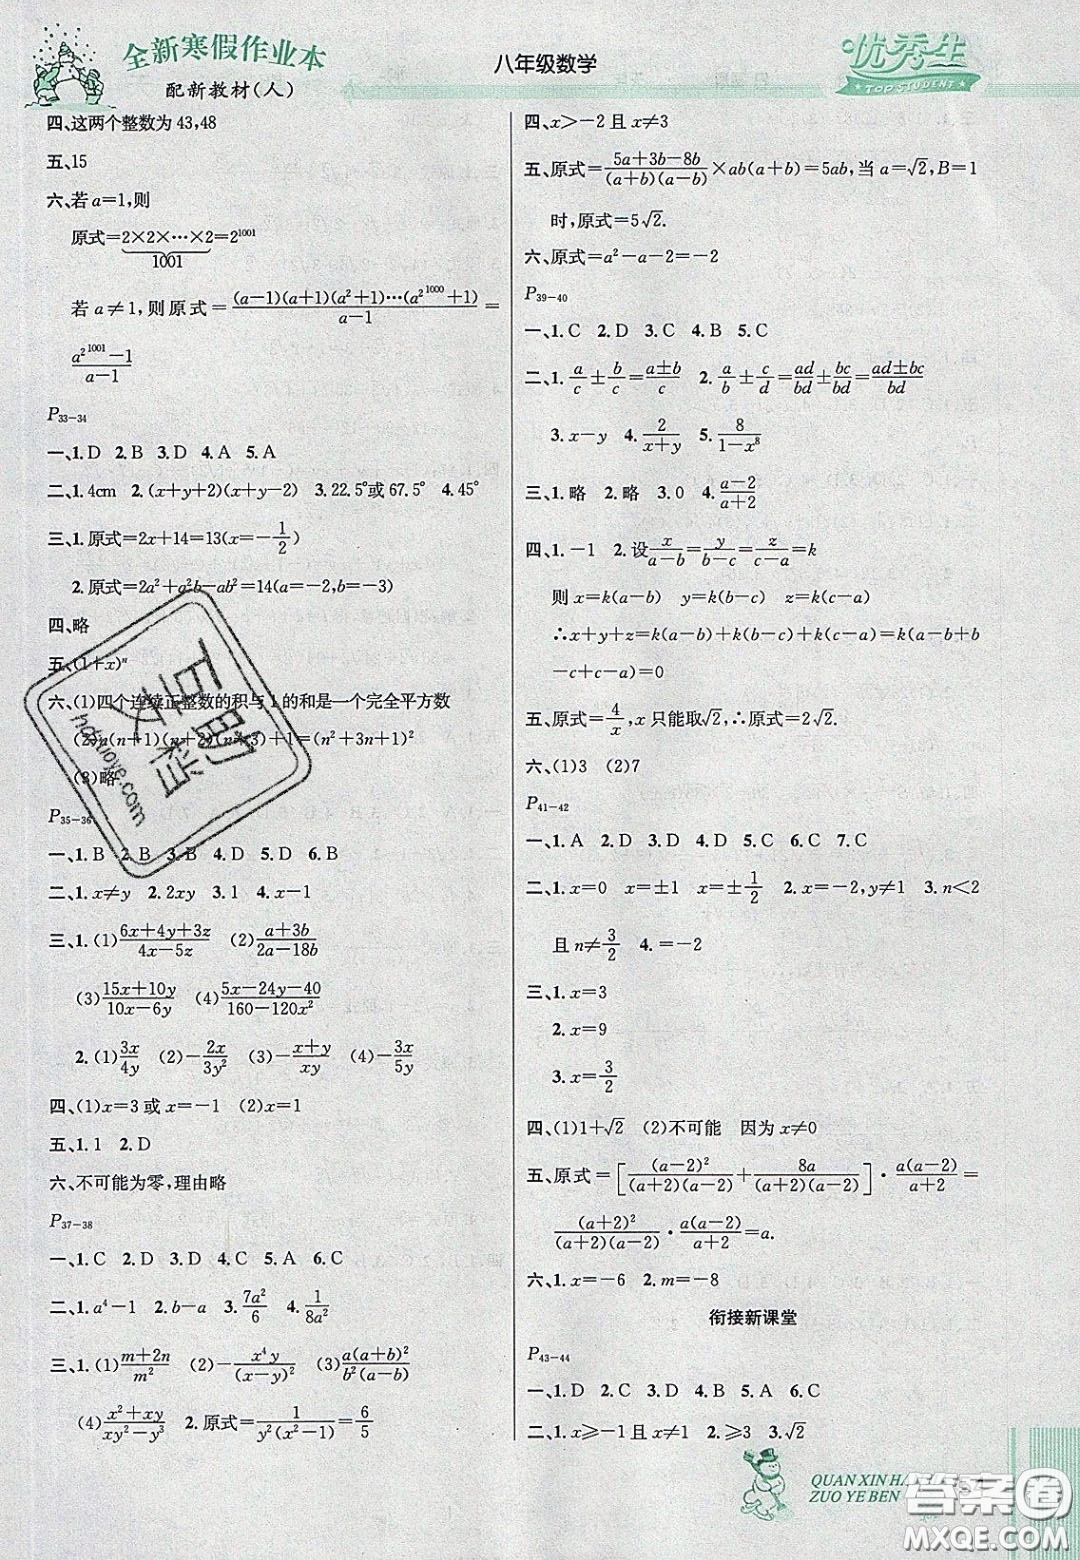 全新寒假作业本
配新教材(人)
八年级数学
优秀生
TOP STUDENT
四、这两个整数为 43,48
五、15
六、若 a=1,则
原式=2×2×…×2=2^1001
1001
若 a≠1,则原式=(a-1)(a+1)(a²+1)…(a^2^1000+1)/(a-1)=
(a^2^1001-1)/(a-1)
P33-34
一、1. D 2. B 3. D 4. A 5. A
二、1. 4cm 2. (x+y+2)(x+y-2) 3. 22.5°或 67.5° 4. 45°
三、1. 原式=2x+14=13(x=-1/2)
2. 原式=2a²+a²b-ab²=14(a=-2,b=-3)
四、略
五、(1+x)^n
六、(1)四个连续正整数的积与 1 的和是一个完全平方数
(2)n(n+1)(n+2)(n+3)+1=(n²+3n+1)²
(3)略
P35-36
一、1. B 2. B 3. B 4. D 5. D 6. B
二、1. x≠y 2. 2xy 3. 1 4. x-1
三、1. (1)(6x+4y+3z)/(4x-5z) (2)(a+3b)/(2a-18b)
(3)(15x+10y)/(10x-6y) (4)(5x-24y-40)/(160-120x²)
2. (1)3x/4y (2)-2x/3y² (3)-(x+y)/xy (4)-3x/5y
四、(1)x=3 或 x=-1 (2)x=1
五、1. 1 2. D
六、不可能为零,理由略
P37-38
一、1. C 2. D 3. D 4. C 5. A 6. C
二、1. a⁴-1 2. b-a 3. 7a²/6 4. 1/8a²
三、1. (1)(m+2n)/m² (2)-x⁴y/(x-y)² (3)a(a+b)²/b²(a+b)
(4)(x²+xy)/(xy²-y³) 2. 原式=1/y²(x²-1)=6/5
四、x>-2 且 x≠3
五、原式=(5a+3b-8b)/(a+b)(a-b)×ab(a+b)=5ab,当 a=√2,B=1
时,原式=5√2.
六、原式=a²-a-2=-2
P39-40
一、1. C 2. D 3. C 4. B 5. C
二、1. a/c±b/c=(a±b)/c 2. a/b±c/d=ad/bd±bc/bd=(ad±bc)/bd
3. x-y 4. 2/(x+y) 5. 8/(1-x⁸)
三、1. 略 2. 略 3. 0 4. (a-2)/(a+2)
四、1. -1 2. 设x/(a-b)=y/(b-c)=z/(c-a)=k
则 x=k(a-b) y=k(b-c) z=k(c-a)
∴x+y+z=k(a-b)+k(b-c)+k(c-a)=k(a-b+b
-c+c-a)=0
五、原式=4/x,x 只能取√2,∴原式=2√2.
六、(1)3 (2)7
P41-42
一、1. A 2. D 3. D 4. B 5. C 6. C 7. C
二、1. x=0 x=±1 x=±1/2 2. x=-2,y≠1 3. n<2
且 n≠3/2 4. =-2
三、1. x=3
2. x=9
3. x=3/2
四、(1)1+√2 (2)不可能 因为 x≠0
五、原式=[(a-2)²/(a+2)(a-2)+8a/(a+2)(a-2)]·a(a-2)/(a+2)=
(a+2)²/(a+2)(a-2)·a(a-2)/(a+2)=a.
六、1. x=-6 2. m=-8
衔接新课堂
P43-44
一、1. D 2. C 3. D 4. B 5. A 6. C
二、1. x⩾-1 且 x≠1 2. ⩾3 3. √2
QUAN XIN HA
ZUO YE BEN
百助文档
hdzuoye.com
答案圈
MXQE.COM